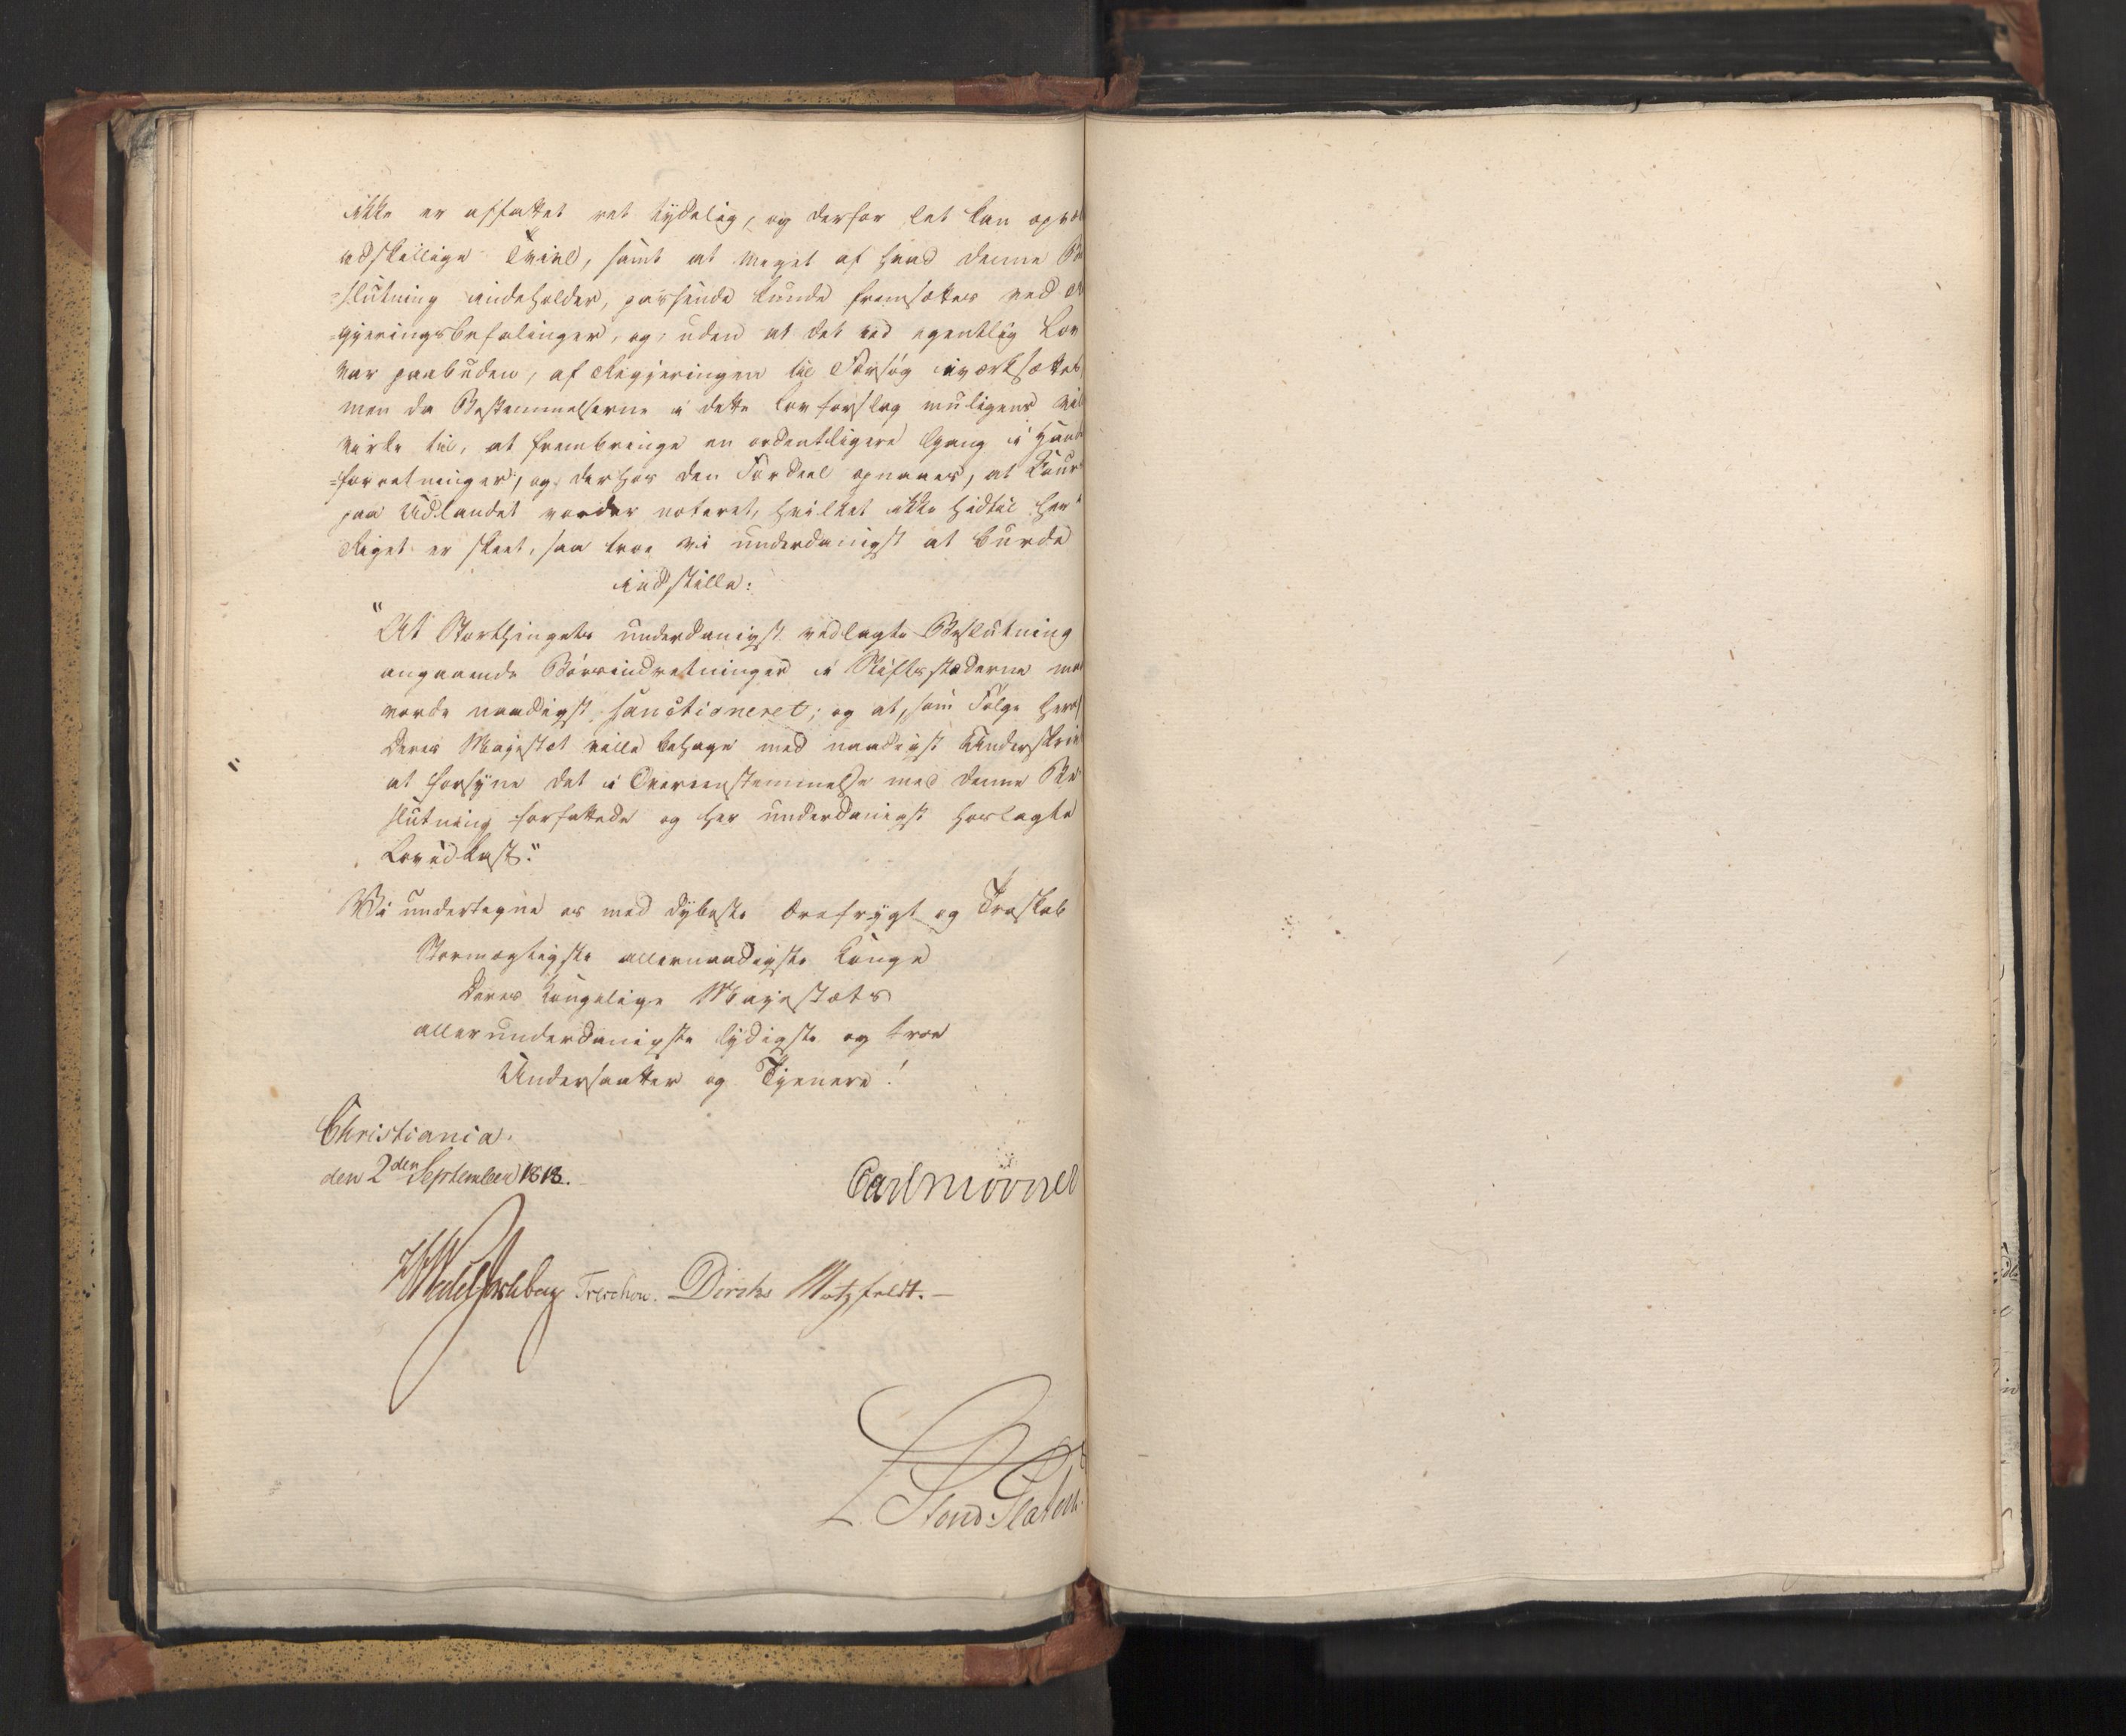 ikke er affattet ret tydelig, og derfor let kan opvæk
adskillige Tvivl, samt at meget af hvad denne Be
=slutning indeholder, passende kunde fremsættes ved Re
=gjeringsbefalinger, og, uden at det ved egentlig Lov
var paabuden, af Regjeringen til Forsøg iværksættes,
men da Bestemmelserne i dette Lovforslag muligens vil
virke til, at frembringe en ordentligere Gang i Hand
=forretninger, og derhos den Fordeel opnaaes, at Cours
paa Udlandet vorder noteret, hvilket ikke hidtil her i
Riget er skeet, saa troe vi underdanigst at burde
indstille:
"At Storthingets underdanigst vedlagte Beslutning
angaaende Børsindretninger i Stiftsstæderne maa
vorde naadigst sanctioneret; og at, som Følge heraf
Deres Majestæt ville behage med naadigst Underskrivt
at forsyne det i Overeensstemmelse med denne Be
slutning forfattede og her underdanigst hoslagte
Lovudkast."
Vi undertegne os med dybeste Ærefrygt og Troskab
Stormægtigste allernaadigste Konge
Deres Kongelige Majestæts
allerunderdanigste lydigste og troe
Undersaatter og Tjenere!
Christiania.
den 2den September 1818.
Carl Mörner
Wedel Jarlsberg Treschow. Diriks Motzfeldt.
L. Stoud Platou